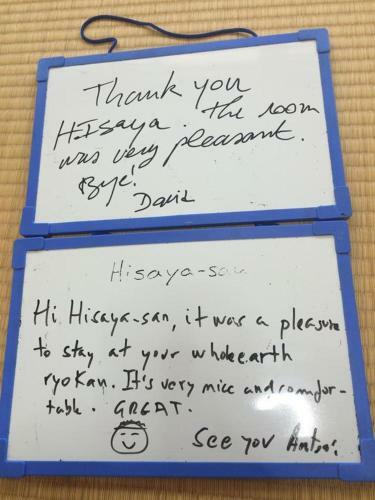 Thank you
Hisaya. The room
was very pleasant.
Bye!
David
Hisaya-san
Hi Hisaya-san, it was a pleasure
to stay at your whole earth
ryokan. It's very nice and comfor-
table. GREAT.
See you